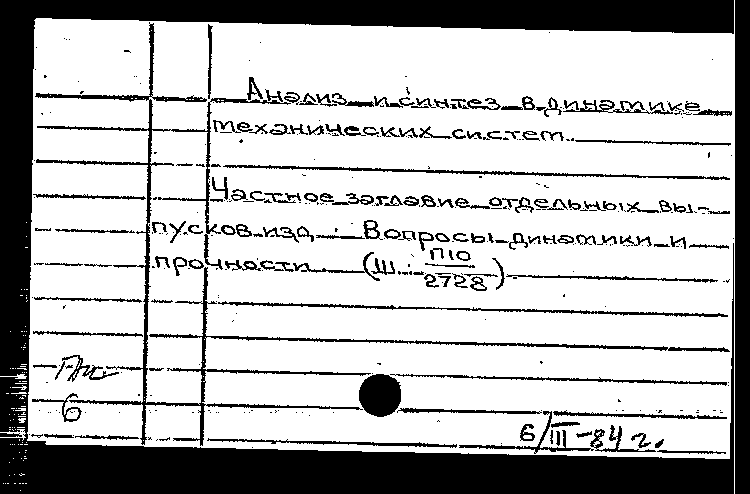 Анализ и синтез в динамике
механических систем.
Частное заглавие отдельных вы-
пусков изд.: Вопросы динамики и
прочности. (Ш : П10
2728)
6
6/III-84 г.